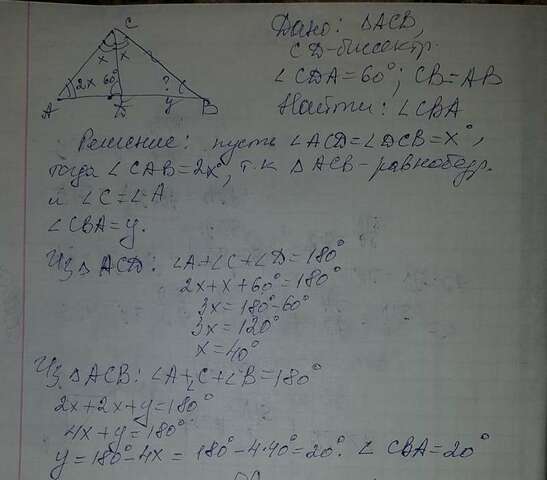 C
x x
2x 60° ? y
A D B
Дано: △ACB,
CD-биссектр.
∠CDA=60°; CB=AB
Найти: ∠CBA
Решение: пусть ∠ACD=∠DCB=x°,
тогда ∠CAB=2x°, т.к △ACB-равнобедр.
и ∠C=∠A
∠CBA=y.
Из △ACD: ∠A+∠C+∠D=180°
2x+x+60°=180°
3x=180°-60°
3x=120°
x=40°
Из △ACB: ∠A+∠C+∠B=180°
2x+2x+y=180°
4x+y=180°
y=180°-4x=180°-4·40°=20°. ∠CBA=20°